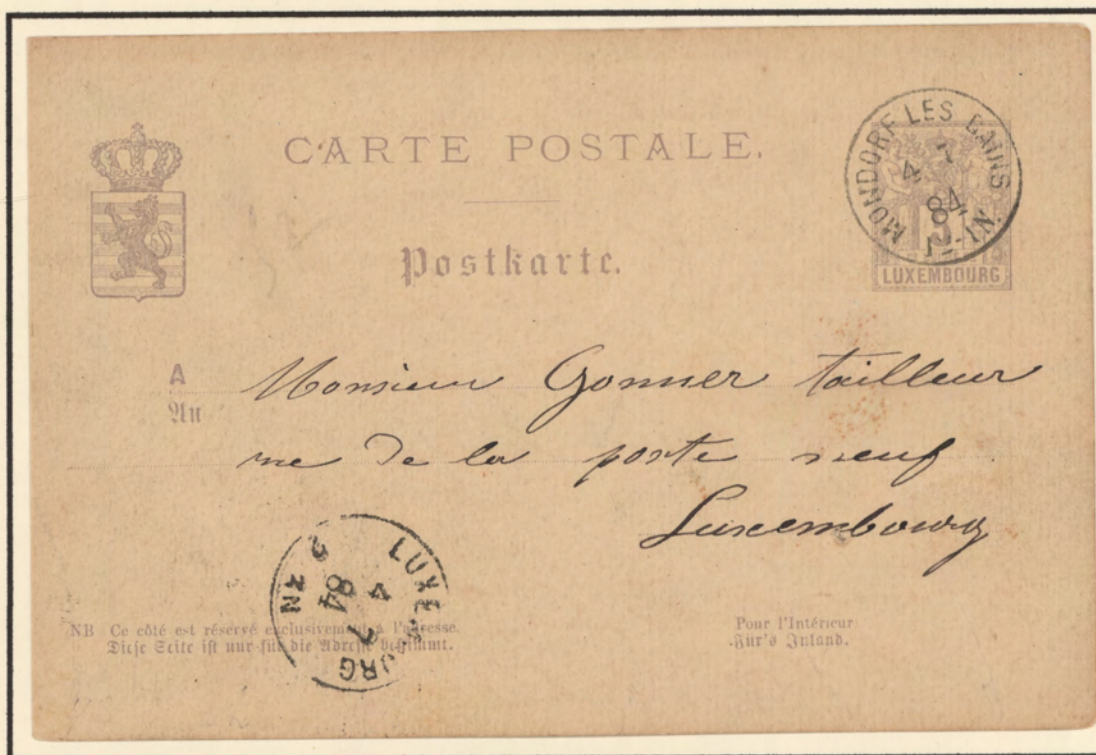 CARTE POSTALE.
Postkarte.
MONDORF LES BAINS
4 7
84
1-2N.
5
LUXEMBOURG
A Monsieur Gonner tailleur
An
rue de la porte neuf
Luxembourg
LUXEMBOURG
4 7
84
N
NB Ce côté est réservé exclusivement à l'adresse.
Diese Seite ist nur für die Adresse bestimmt.
Pour l'Intérieur.
Für's Inland.